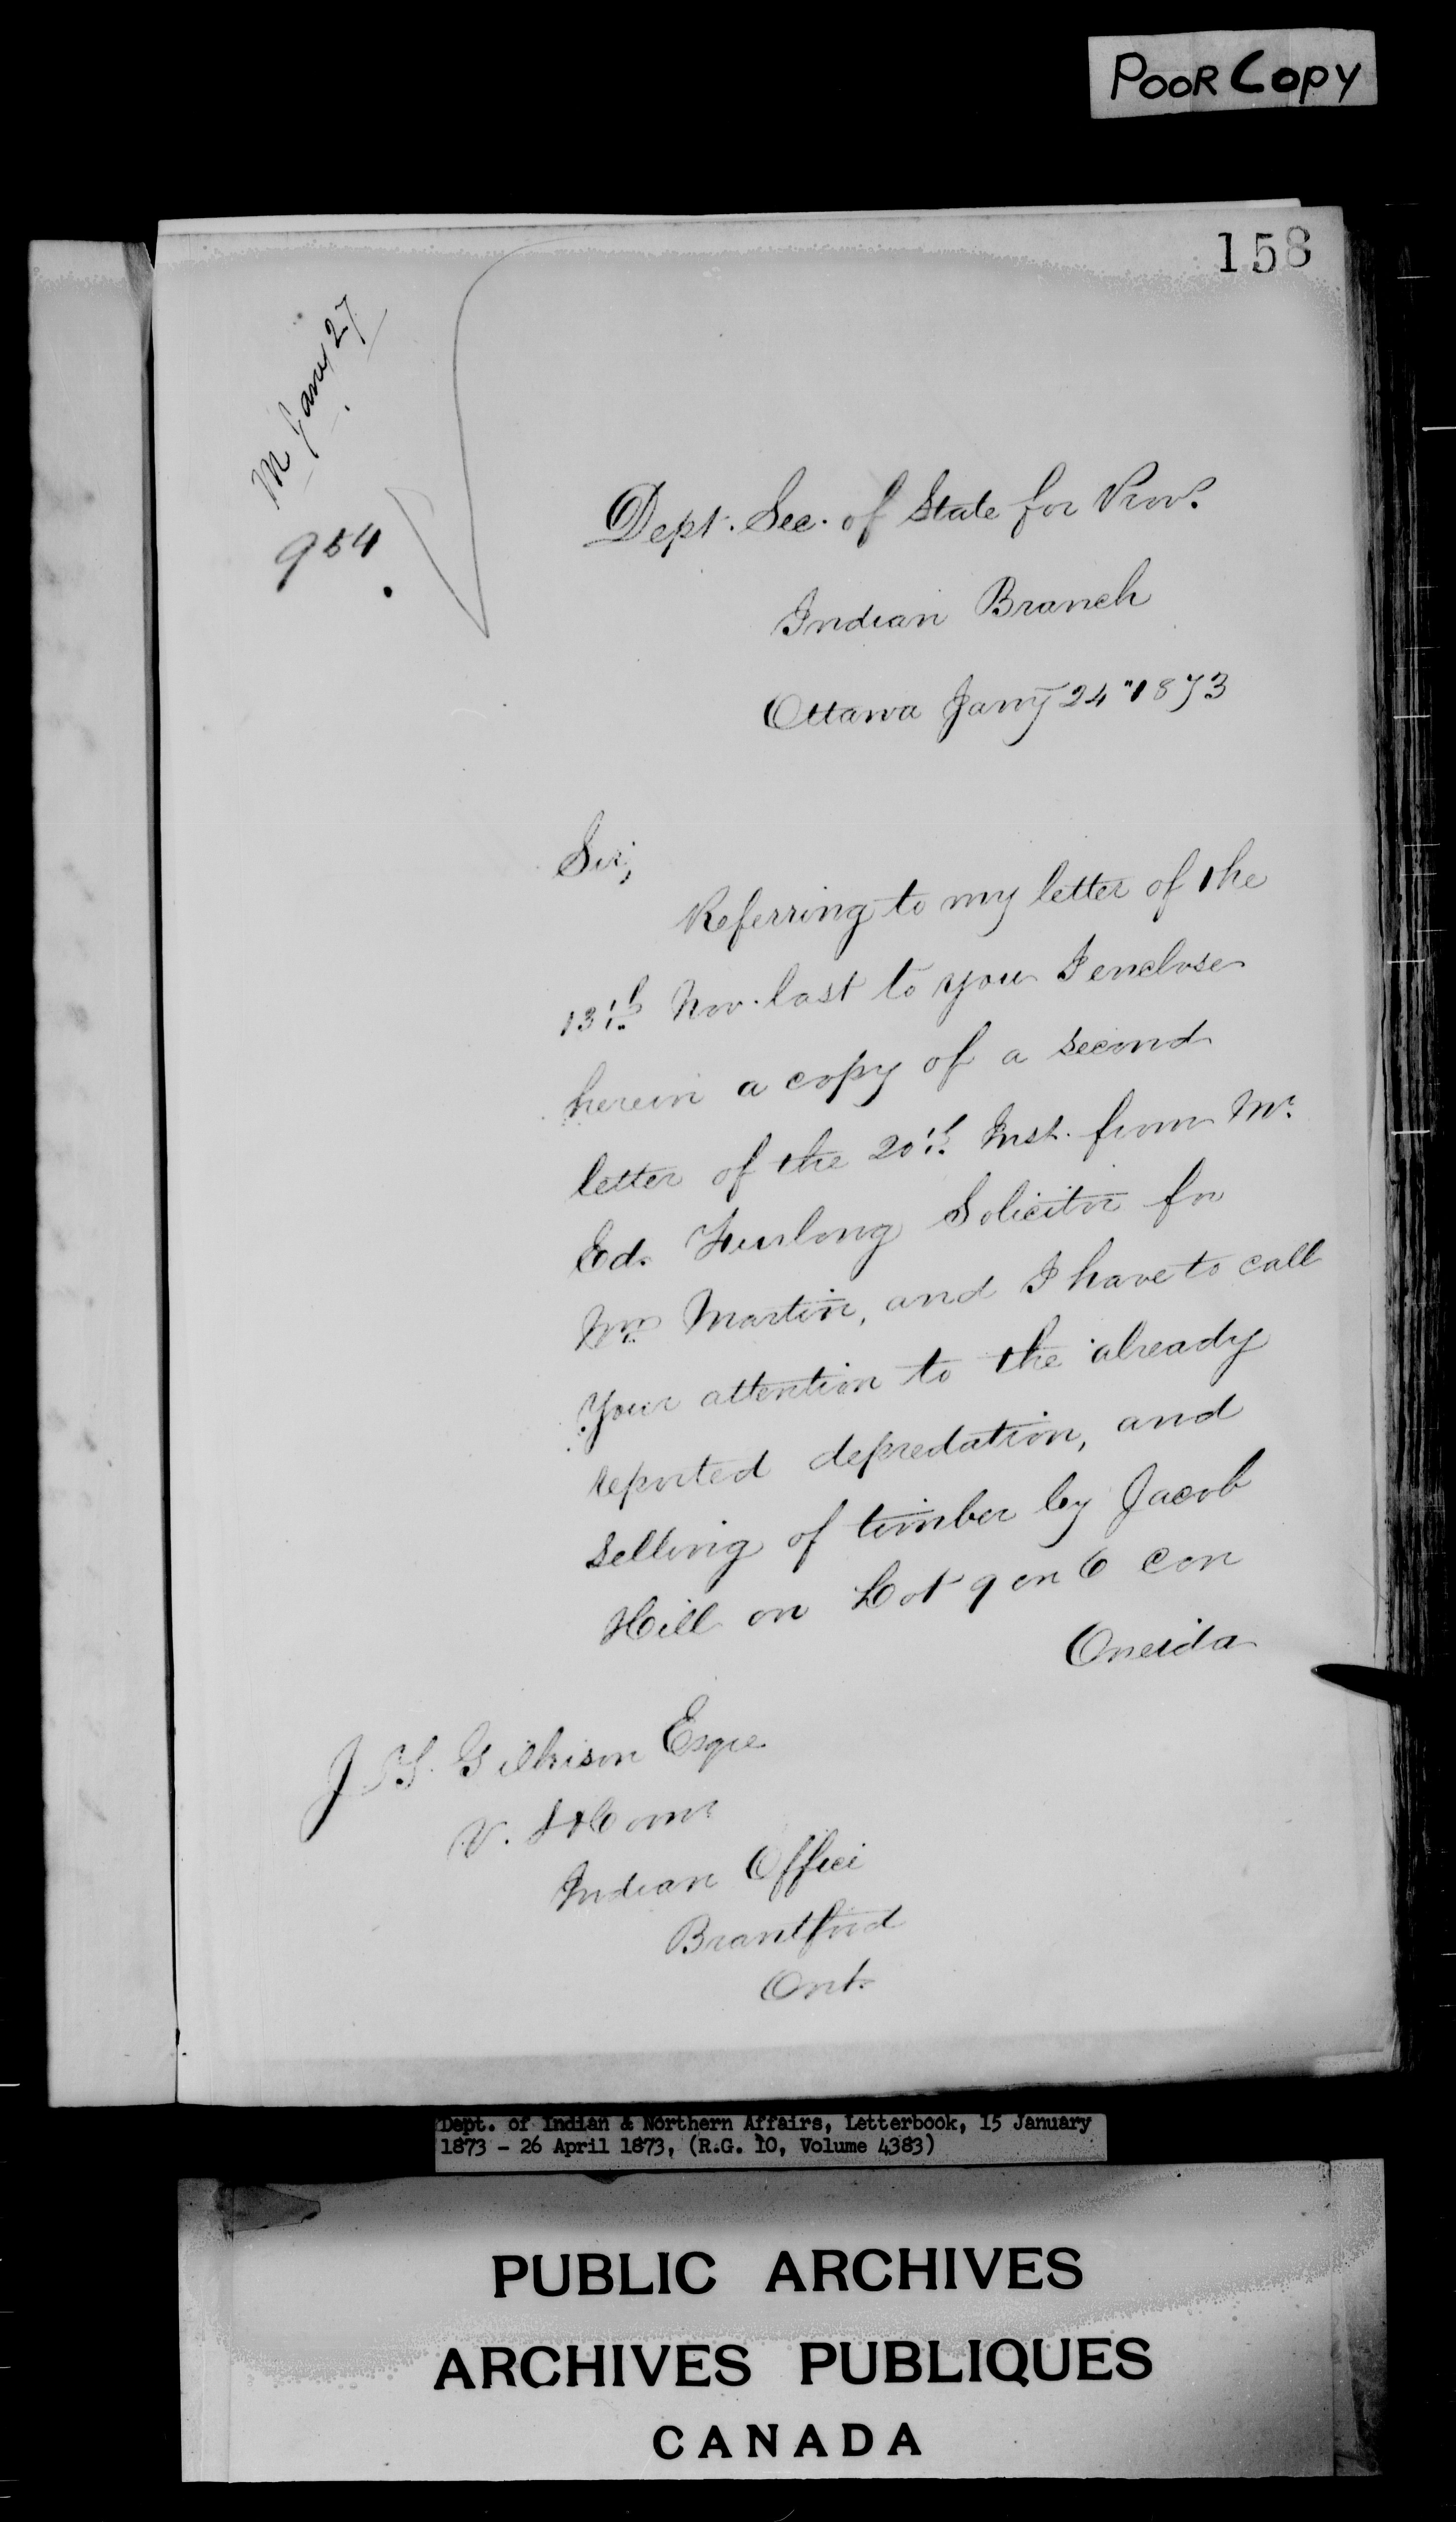 POOR COPY
158
M Jany 27
954
Dept. Sec. of State for Prov.
Indian Branch
Ottawa Jany 24" 1873
Sir,
Referring to my letter of the
13th Nov. last to you I enclose
herein a copy of a second
letter of the 20th Inst. from Mr
Ed. Furlong Solicitor for
Wm Martin, and I have to call
Your attention to the already
reported depredation, and
selling of timber by Jacob
Hill on Lot 9 on 6 Con
Oneida
J. T. Gilkison Esqre
V. S. & Comr
Indian Office
Brantford
Ont.
Dept. of Indian & Northern Affairs, Letterbook, 15 January
1873 - 26 April 1873, (R.G. 10, Volume 4383)
PUBLIC ARCHIVES
ARCHIVES PUBLIQUES
CANADA